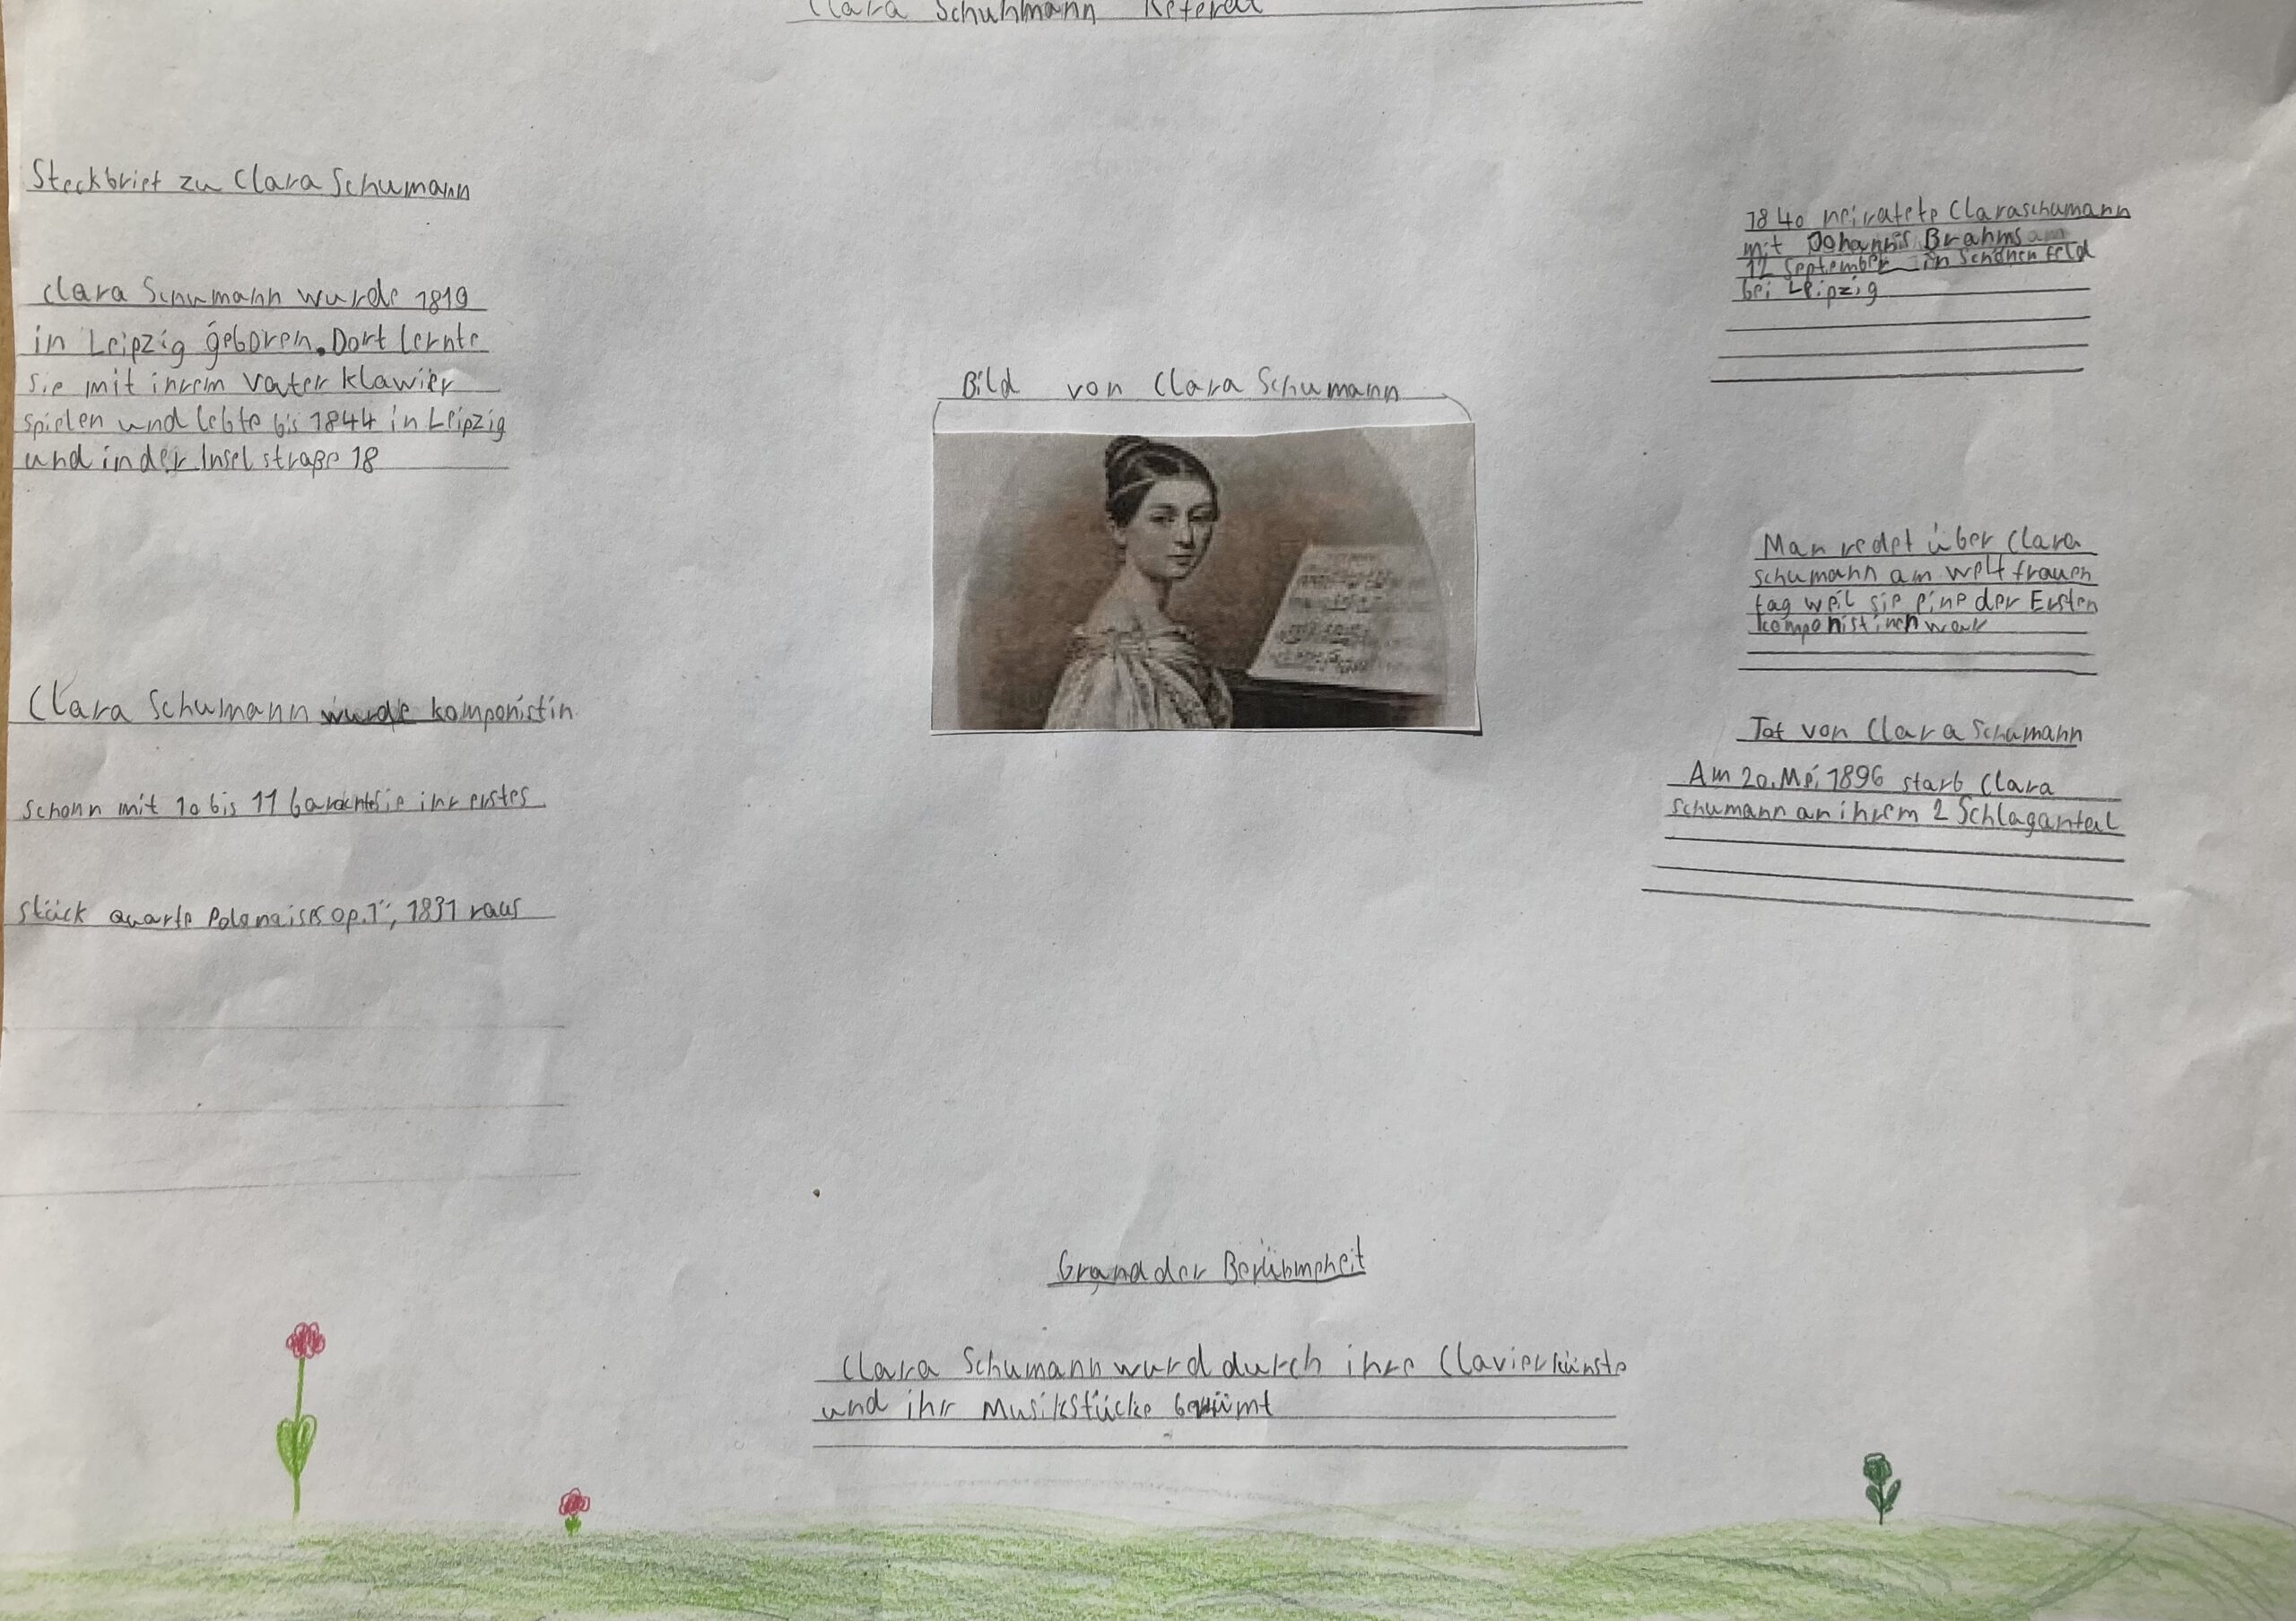 Clara Schuhmann Referat
Steckbrief zu Clara Schumann
Clara Schumann wurde 1819
in Leipzig geboren. Dort lernte
sie mit ihrem Vater klawier
spielen und lebte bis 1844 in Leipzig
und in der Inselstraße 18
Clara Schumann wurde komponistin
schonn mit 10 bis 11 brachte sie ihr erstes
stück quarte Polonaises op.1", 1831 raus
Bild von Clara Schumann
1840 heiratete Claraschumann
mit Johannis Brahms am
12 September in Schönenfeld
bei Leipzig
Man redet über Clara
schumann am welt frauen
tag weil sie eine der Ersten
komponistinen war
Tot von Clara Schumann
Am 20. Mei 1896 starb Clara
schumann an ihrem 2 Schlaganfal
Grund der Berühmpheit
Clara Schumann wurd durch ihre Clavierkünste
und ihr Musikstücke berümt